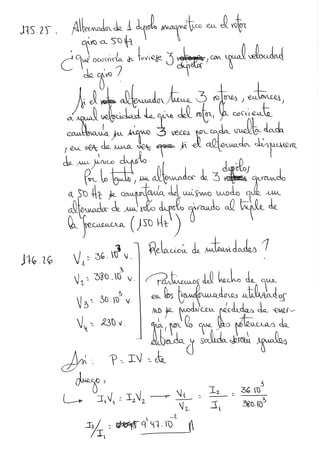 175.25. Alternador de 1 dipolo magnético en el rotor
giro a 50 Hz
¿qué ocurriría si tuviese 3 dipolos, con igual velocidad
de giro?
Si el alternador tiene 3 rotores, entonces,
a igual velocidad de giro del rotor, la corriente
cambiaría su signo 3 veces por cada vuelta dada
, en vez de una vez si el alternador dispusiera
de un único dipolo.
Por lo tanto, un alternador de 3 dipolos girando
a 50 Hz se comportaría del mismo modo que un
alternador de un solo dipolo girando al triple de
la frecuencia (150 Hz)
176.26. V₁ = 36.10³ v. Relación de intensidades?
V₂ = 380.10³ v. Partiremos del hecho de que
V₃ = 30.10³ v en los transformadores utilizados
V₄ = 230 v. no se producen pérdidas de ener-
gía, por lo que las potencias de
entrada y salida serán iguales
Así: P = IV = cte
Luego,
↳ I₁V₁ = I₂V₂ → V₁/V₂ = I₂/I₁ = 36.10³/380.10³
I₂/I₁ = 9'47.10⁻²